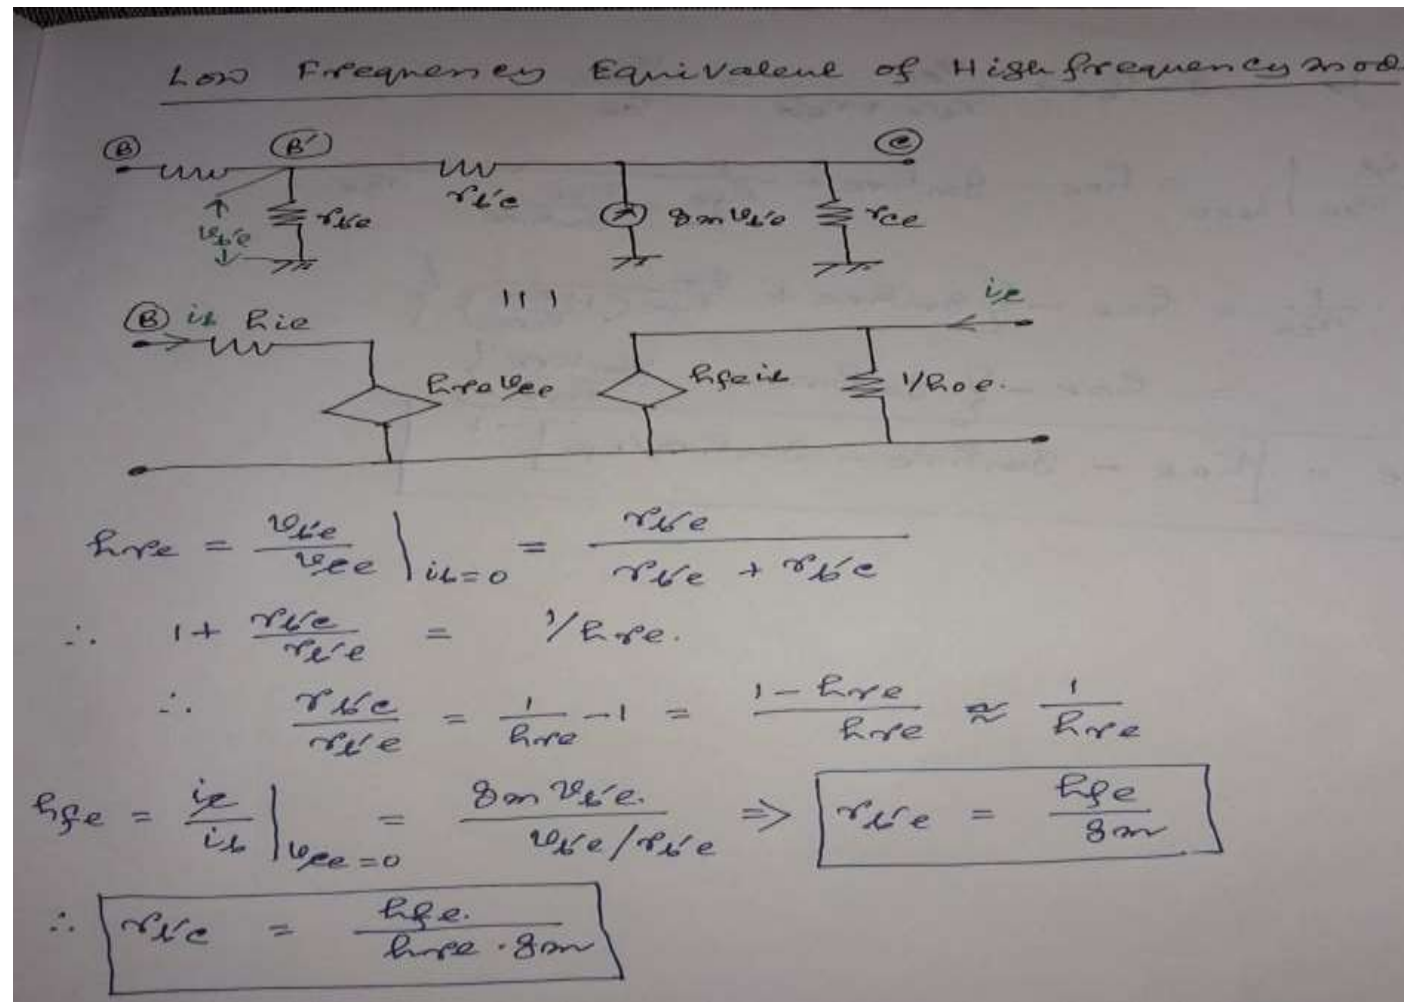 Low Frequency Equivalent of High frequency mod
B B' C
r_b'c
v_b'e r_b'e g_m v_b'e r_ce
B i_b h_ie i_c
h_re v_ce h_fe i_b 1/h_oe.
h_re = v_b'e / v_ce | i_b=0 = r_b'e / (r_b'e + r_b'c)
∴ 1 + r_b'c / r_b'e = 1/h_re.
∴ r_b'c / r_b'e = 1/h_re - 1 = (1 - h_re) / h_re ≈ 1/h_re
h_fe = i_c / i_b | v_ce=0 = g_m v_b'e. / (v_b'e / r_b'e) ⇒ r_b'e = h_fe / g_m
∴ r_b'c = h_fe. / (h_re · g_m)